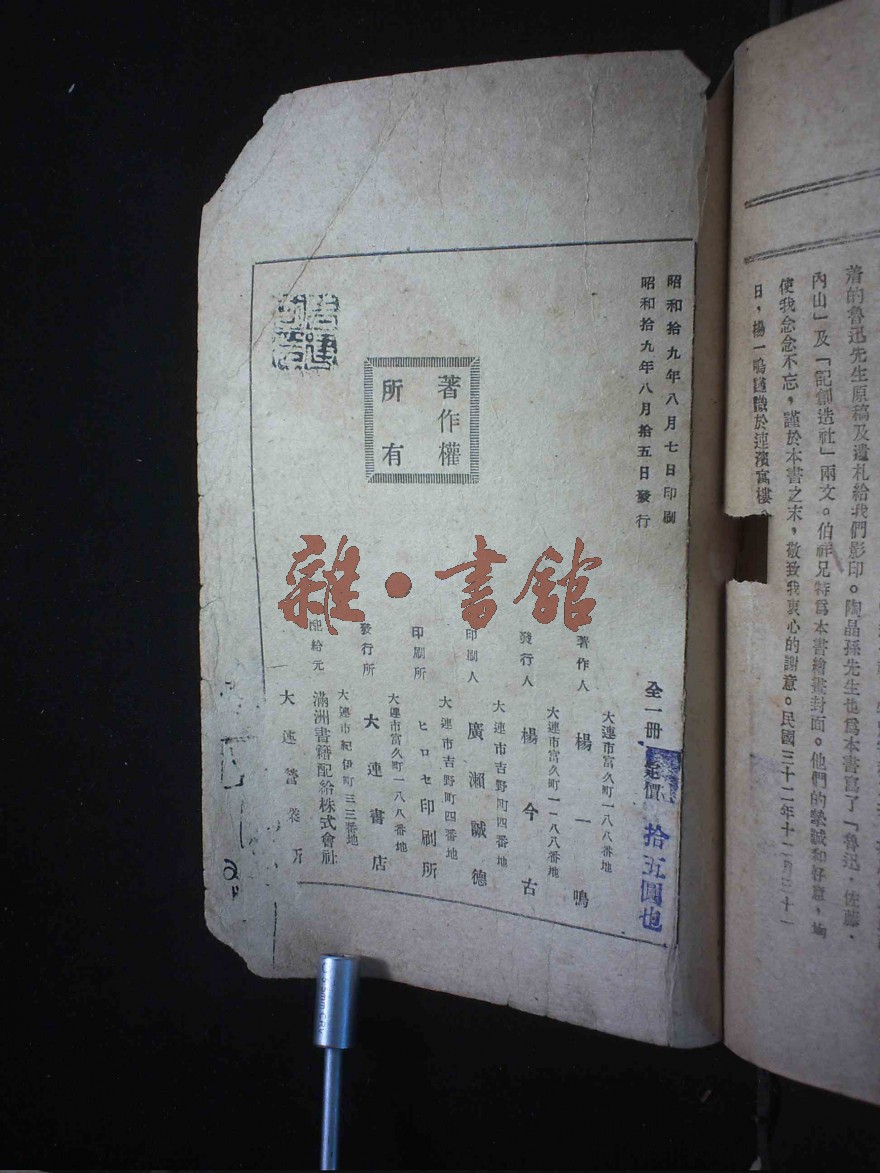 着的魯迅先生原稿及遺札給我們影印。陶晶孫先生也爲本書寫了「魯迅・佐藤・
內山」及「記創造社」兩文。伯祥兄特爲本書繪畫封面。他們的摯誠和好意，
使我念念不忘，謹於本書之末，敬致我衷心的謝意。民國三十二年十二月三十一
日，楊一鳴謹識於連濱寓樓。
昭和拾九年八月七日印刷
昭和拾九年八月拾五日發行
全一冊 定價 拾五圓也
著作權
所有
大連市富久町一八八番地
著作人 楊一鳴
大連市富久町一八八番地
發行人 楊今古
大連市吉野町四番地
印刷人 廣瀨誠德
大連市吉野町四番地
印刷所 ヒロセ印刷所
大連市富久町一八八番地
發行所 大連書店
大連市紀伊町三三番地
配給元 滿洲書籍配給株式會社
大連營業所
雜・書館